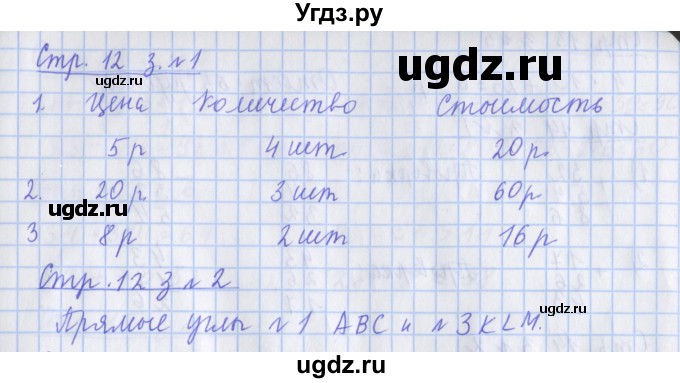 Угдз.ру
Стр. 12 з. №1
ugdz.ru
ugdz.ru
1. Цена Количество Стоимость
5р 4 шт 20 р.
2. 20р 3 шт 60р
ugdz.ru
3 8р 2 шт 16 р
ugdz.ru
Стр. 12 з №2
Прямые углы №1 АВС и №3 KLM.
ugdz.ru
ugdz.ru